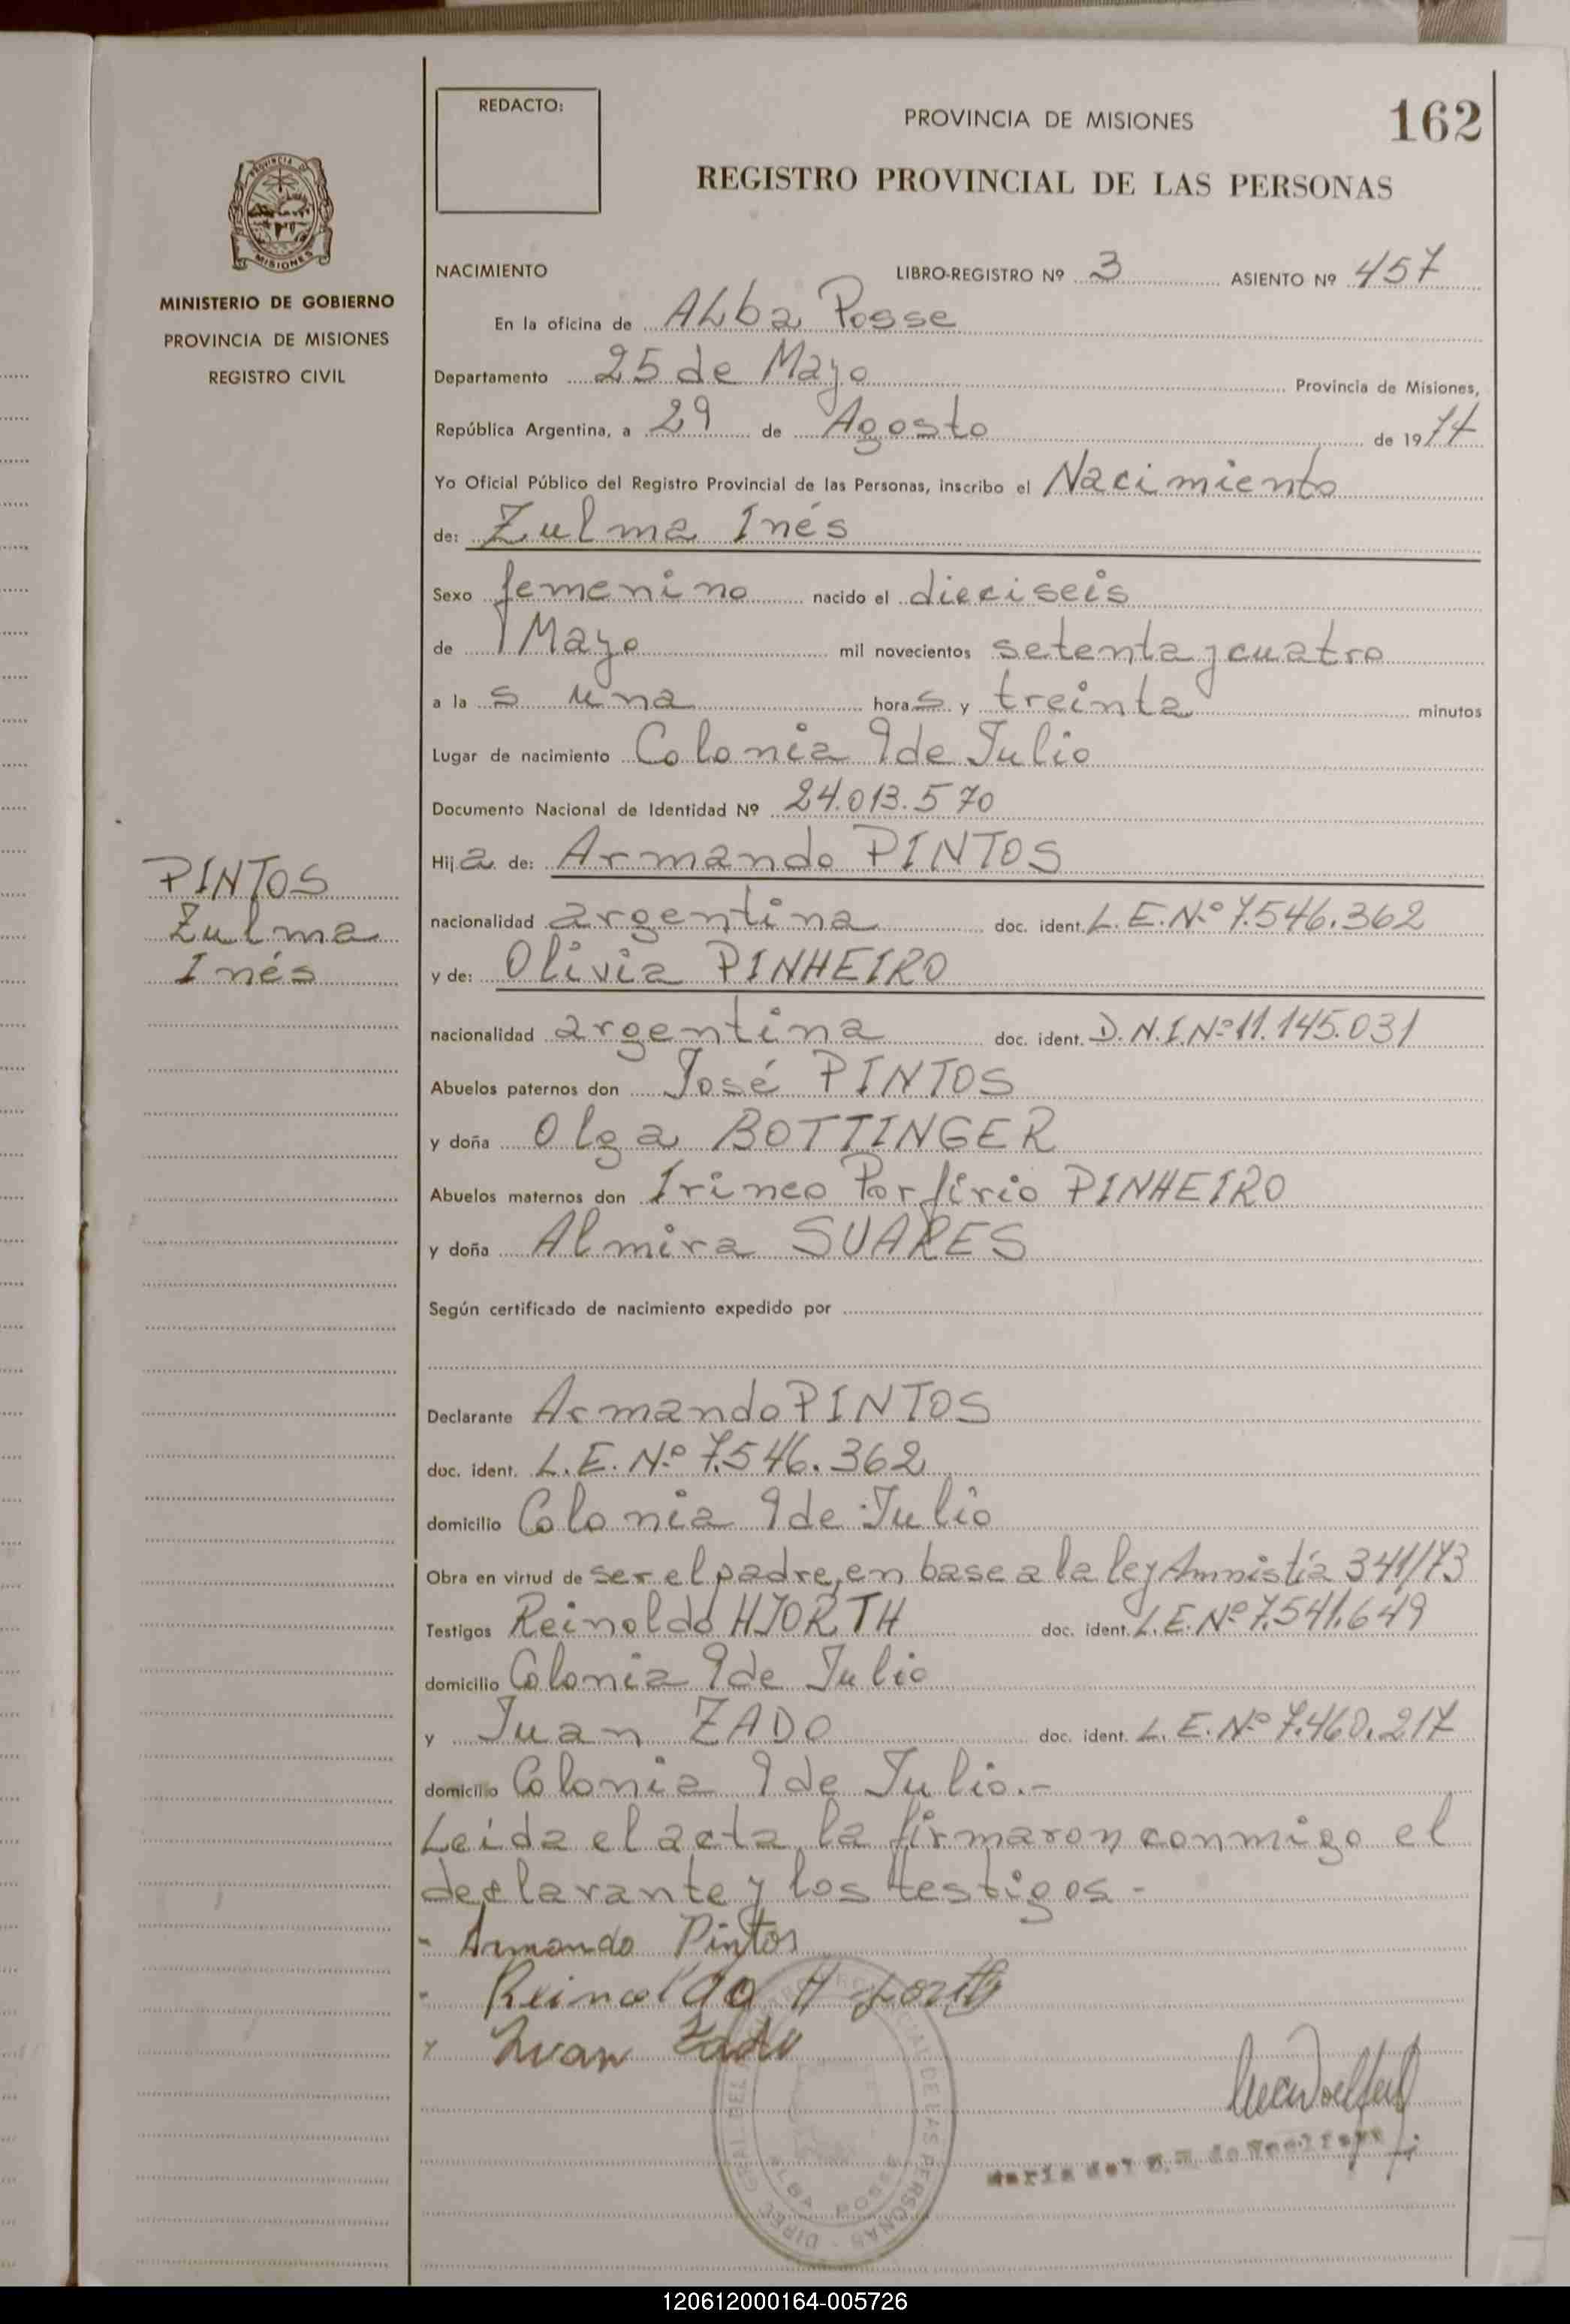 REDACTO:
PROVINCIA DE MISIONES
162
REGISTRO PROVINCIAL DE LAS PERSONAS
PROVINCIA DE
MISIONES
MINISTERIO DE GOBIERNO
PROVINCIA DE MISIONES
REGISTRO CIVIL
NACIMIENTO LIBRO-REGISTRO Nº 3 ASIENTO Nº 457
En la oficina de ALba Posse
Departamento 25 de Mayo Provincia de Misiones,
República Argentina, a 29 de Agosto de 1974
Yo Oficial Público del Registro Provincial de las Personas, inscribo el Nacimiento
de: Zulma Inés
Sexo femenino nacido el dieciseis
de Mayo mil novecientos setenta y cuatro
a la s una horas y treinta minutos
Lugar de nacimiento Colonia 9 de Julio
Documento Nacional de Identidad Nº 24.013.570
Hija de: Armando PINTOS
PINTOS
Zulma
Inés
nacionalidad argentina doc. ident. L.E.Nº 7.546.362
y de: Olivia PINHEIRO
nacionalidad argentina doc. ident. D.N.I.Nº 11.145.031
Abuelos paternos don José PINTOS
y doña Olga BOTTINGER
Abuelos maternos don Irineo Porfirio PINHEIRO
y doña Almira SUARES
Según certificado de nacimiento expedido por
Declarante Armando PINTOS
doc. ident. L.E. Nº 7.546.362
domicilio Colonia 9 de Julio
Obra en virtud de ser el padre, en base a la ley Amnistía 341/73
Testigos Reinoldo HJORTH doc. ident. L.E.Nº 7.541.649
domicilio Colonia 9 de Julio
y Juan ZADO doc. ident. L.E.Nº 7.460.217
domicilio Colonia 9 de Julio.-
Leída el acta, la firmaron conmigo el
declarante y los testigos -
- Armando Pintos
- Reinoldo Hjorth
y Juan Zado
DIREC. GRAL. DEL PROVINCIAL DE LAS PERSONAS
ALBA POSSE
María del
120612000164-005726